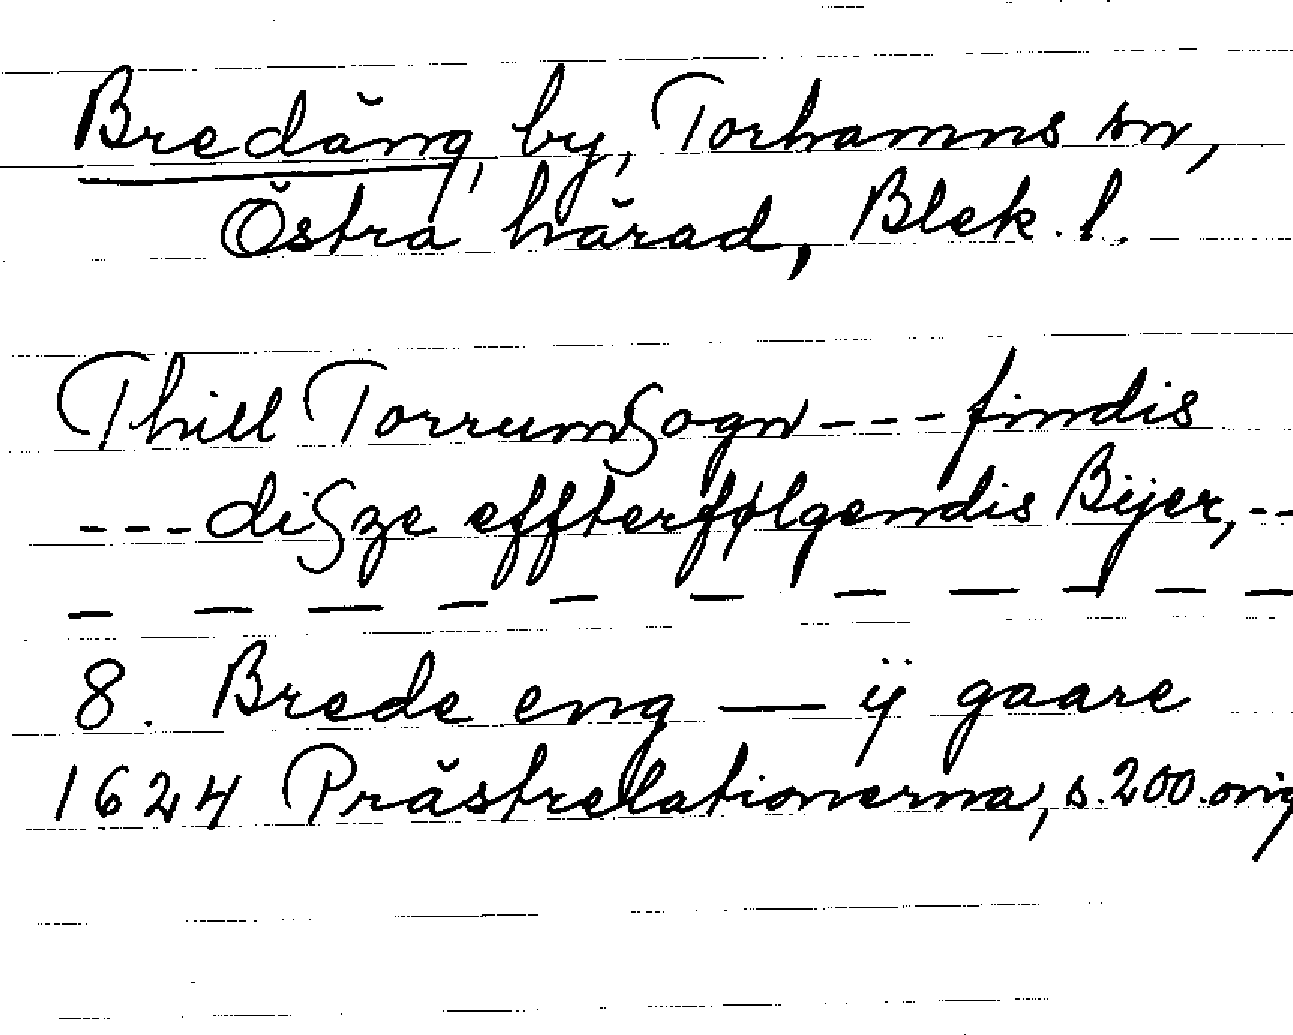 Bredäng, by, Torhamns sn,
Östra härad, Blek. l.
Thill TorrumSogn --- findis
--- diSze effterfølgendis Bijer, --
— — — — — — — — — — —
8. Brede eng — ij gaare
1624 Prästrelationerna, s. 200. orig